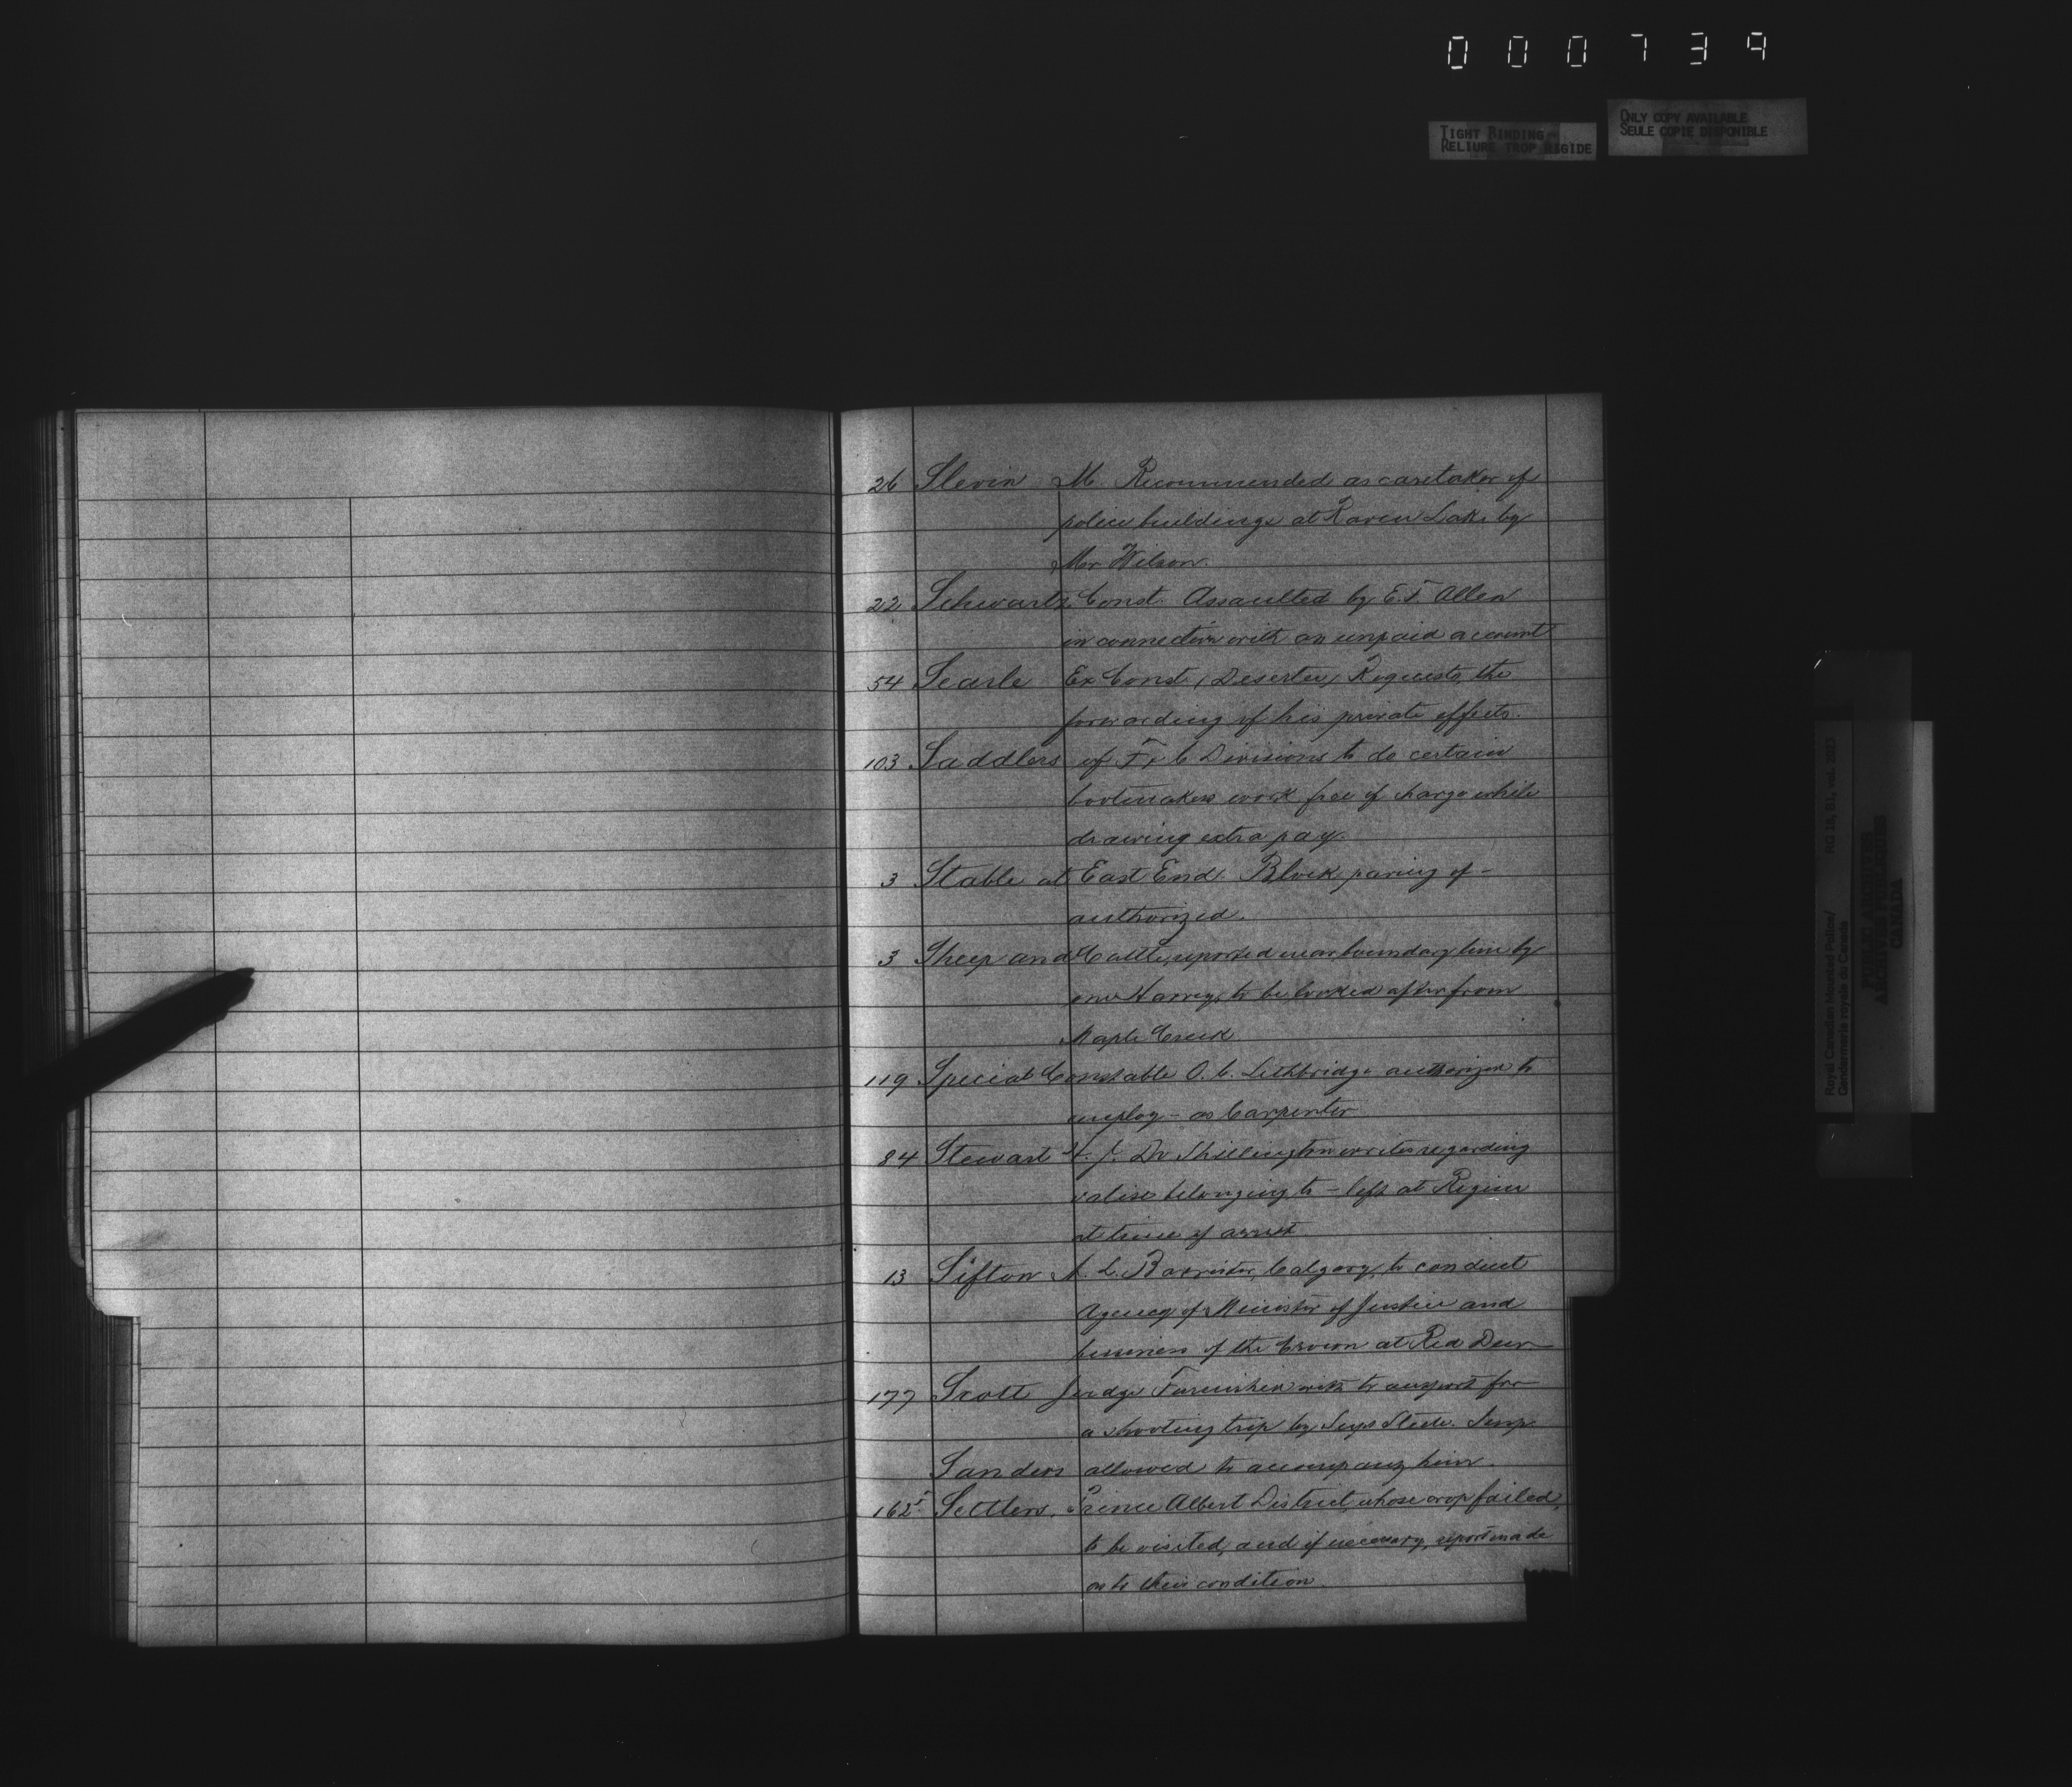 000739
TIGHT BINDING
RELIURE TROP RIGIDE
ONLY COPY AVAILABLE
SEULE COPIE DISPONIBLE
26 Slevin M. Recommended as caretaker of
police buildings at Raven Lake by
Mr Wilson.
22 Schwartz Const. Assaulted by E.T. Allen
in connection with an unpaid account
54 Searle Ex Const (Deserter) Requests the
forwarding of his private effects.
103 Saddlers of F & C Divisions to do certain
bootmakers work free of charge while
drawing extra pay.
3 Stable at East End. Block paving of -
authorized.
3 Sheep and Cattle, reported near boundary line by
one Harvey, to be looked after from
Maple Creek
119 Special Constable O.C. Lethbridge authorized to
employ - as Carpenter
84 Stewart Dr Shillington writes regarding
valise belonging to - left at Regina
at time of arrest
13 Sifton A. L. Barrister, Calgary, to conduct
Agency of Minister of Justice and
business of the Crown at Red Deer
177 Scott Judge Furnished with transport for
a shooting trip by Supt Steele. Insp
Sanders allowed to accompany him.
162 Settlers, Prince Albert District, whose crop failed,
to be visited, and if necessary, report made
as to their condition.
Royal Canadian Mounted Police/
Gendarmerie royale du Canada
RG 18, B1, vol.
PUBLIC ARCHIVES
ARCHIVES PUBLIQUES
CANADA